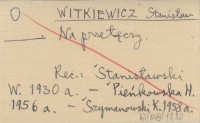 O WITKIEWICZ Stanisław
Na przełęczy.
Rec.: Stanisławski
W. 1930 a. — Pieńkowska H.
1956 a. — Szymanowski K. 1955 a.